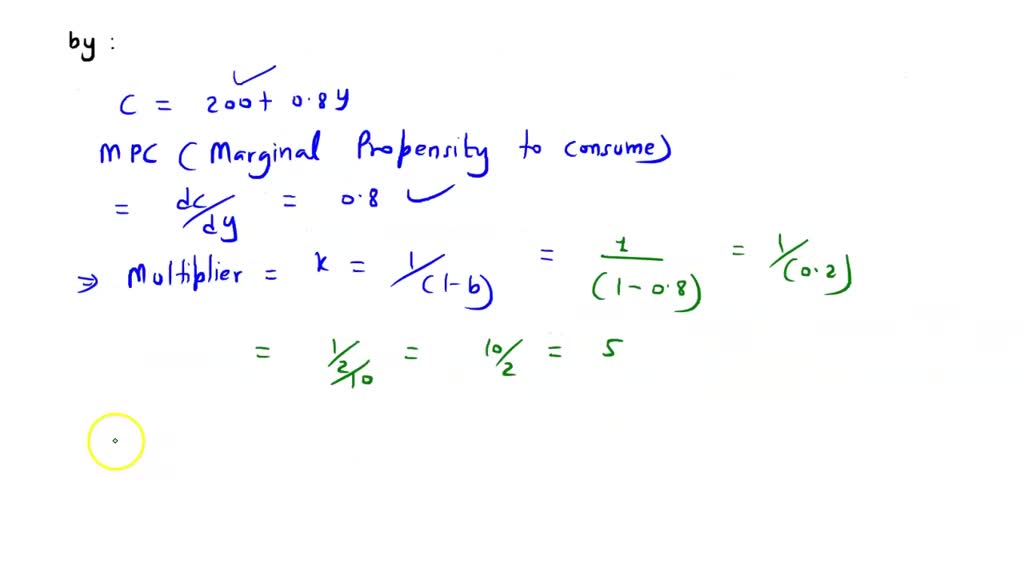 by :
C = 200 + 0.8y
MPC ( Marginal Propensity to consume)
= dc/dy = 0.8
⇒ Multiplier = k = 1/(1-b) = 1/(1-0.8) = 1/(0.2)
= 1/2/10 = 10/2 = 5